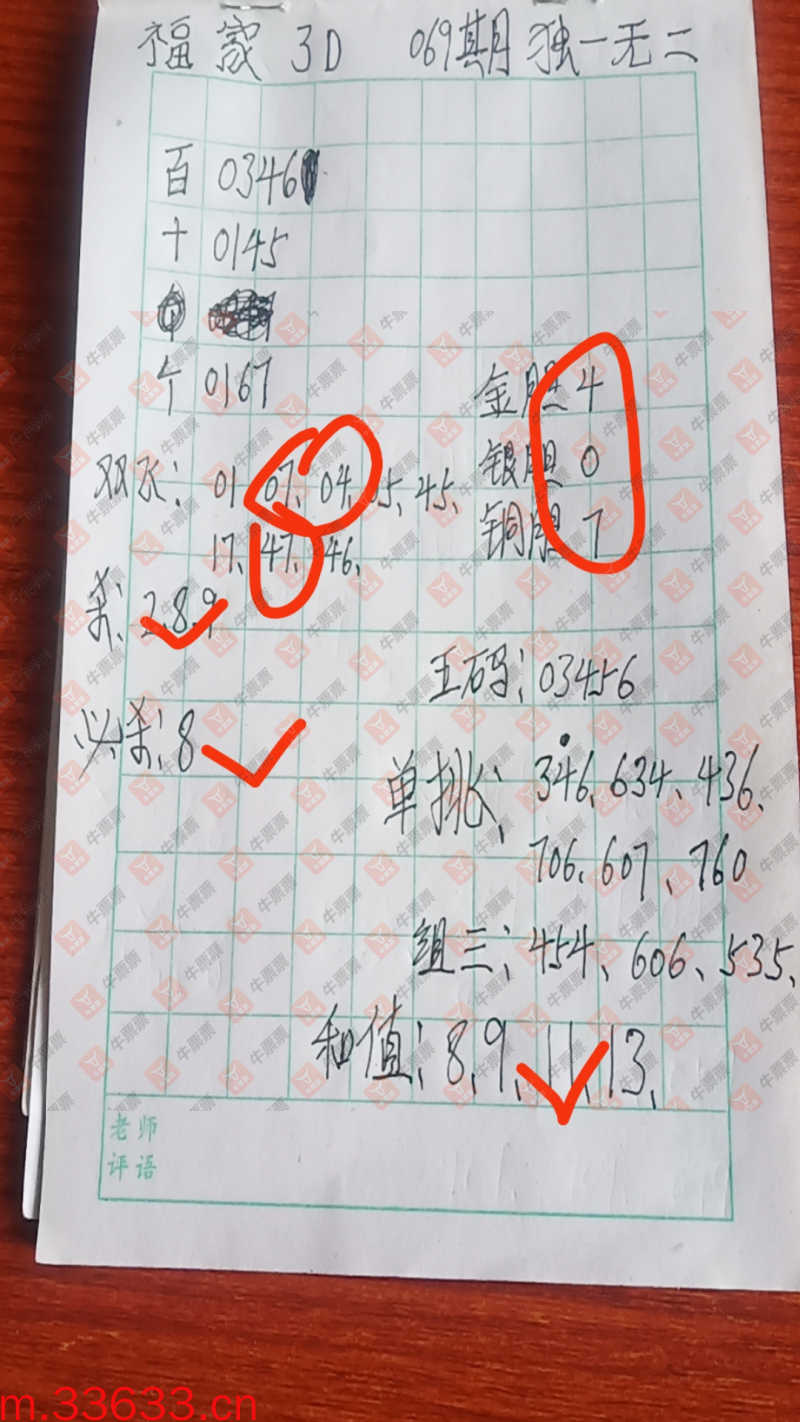 福家3D 069期独一无二
百 0346
十 0145
个 0167
金胆4
双飞: 01 07、04、05、45、
银胆0
17、47、46、
铜胆7
杀: 2.8.9
五码: 03456
必杀: 8
单挑: 346、634、436、
706、607、760
组三: 454、606、535、
和值: 8、9、11、13、
老师
评语
牛票票
m.33633.cn